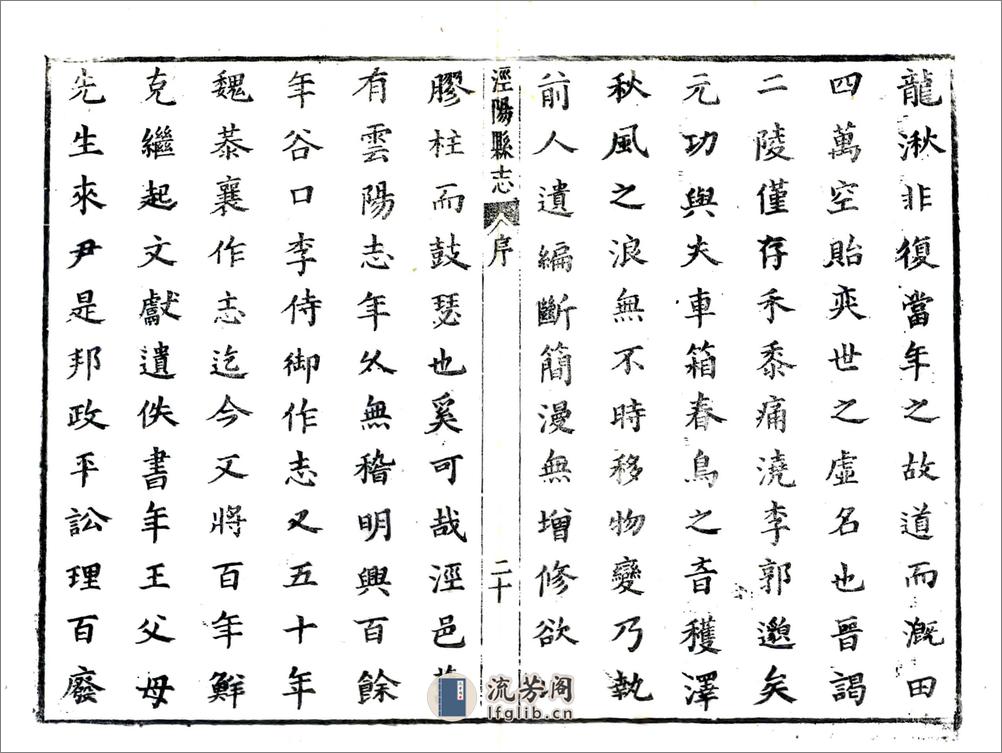 龍湫非復當年之故道而溉田
四萬空貽奕世之虛名也晉謁
二陵僅存禾黍痛澆李郭邈矣
元功與夫車箱春鳥之音穫澤
秋風之浪無不時移物變乃執
前人遺編斷簡漫無增修欲
涇陽縣志 序 二十
膠柱而鼓瑟也奚可哉涇邑
有雲陽志年久無稽明興百餘
年谷口李侍御作志又五十年
魏恭襄作志迄今又將百年鮮
克繼起文獻遺佚書年王父母
先生來尹是邦政平訟理百廢
流芳阁
lfglib.cn